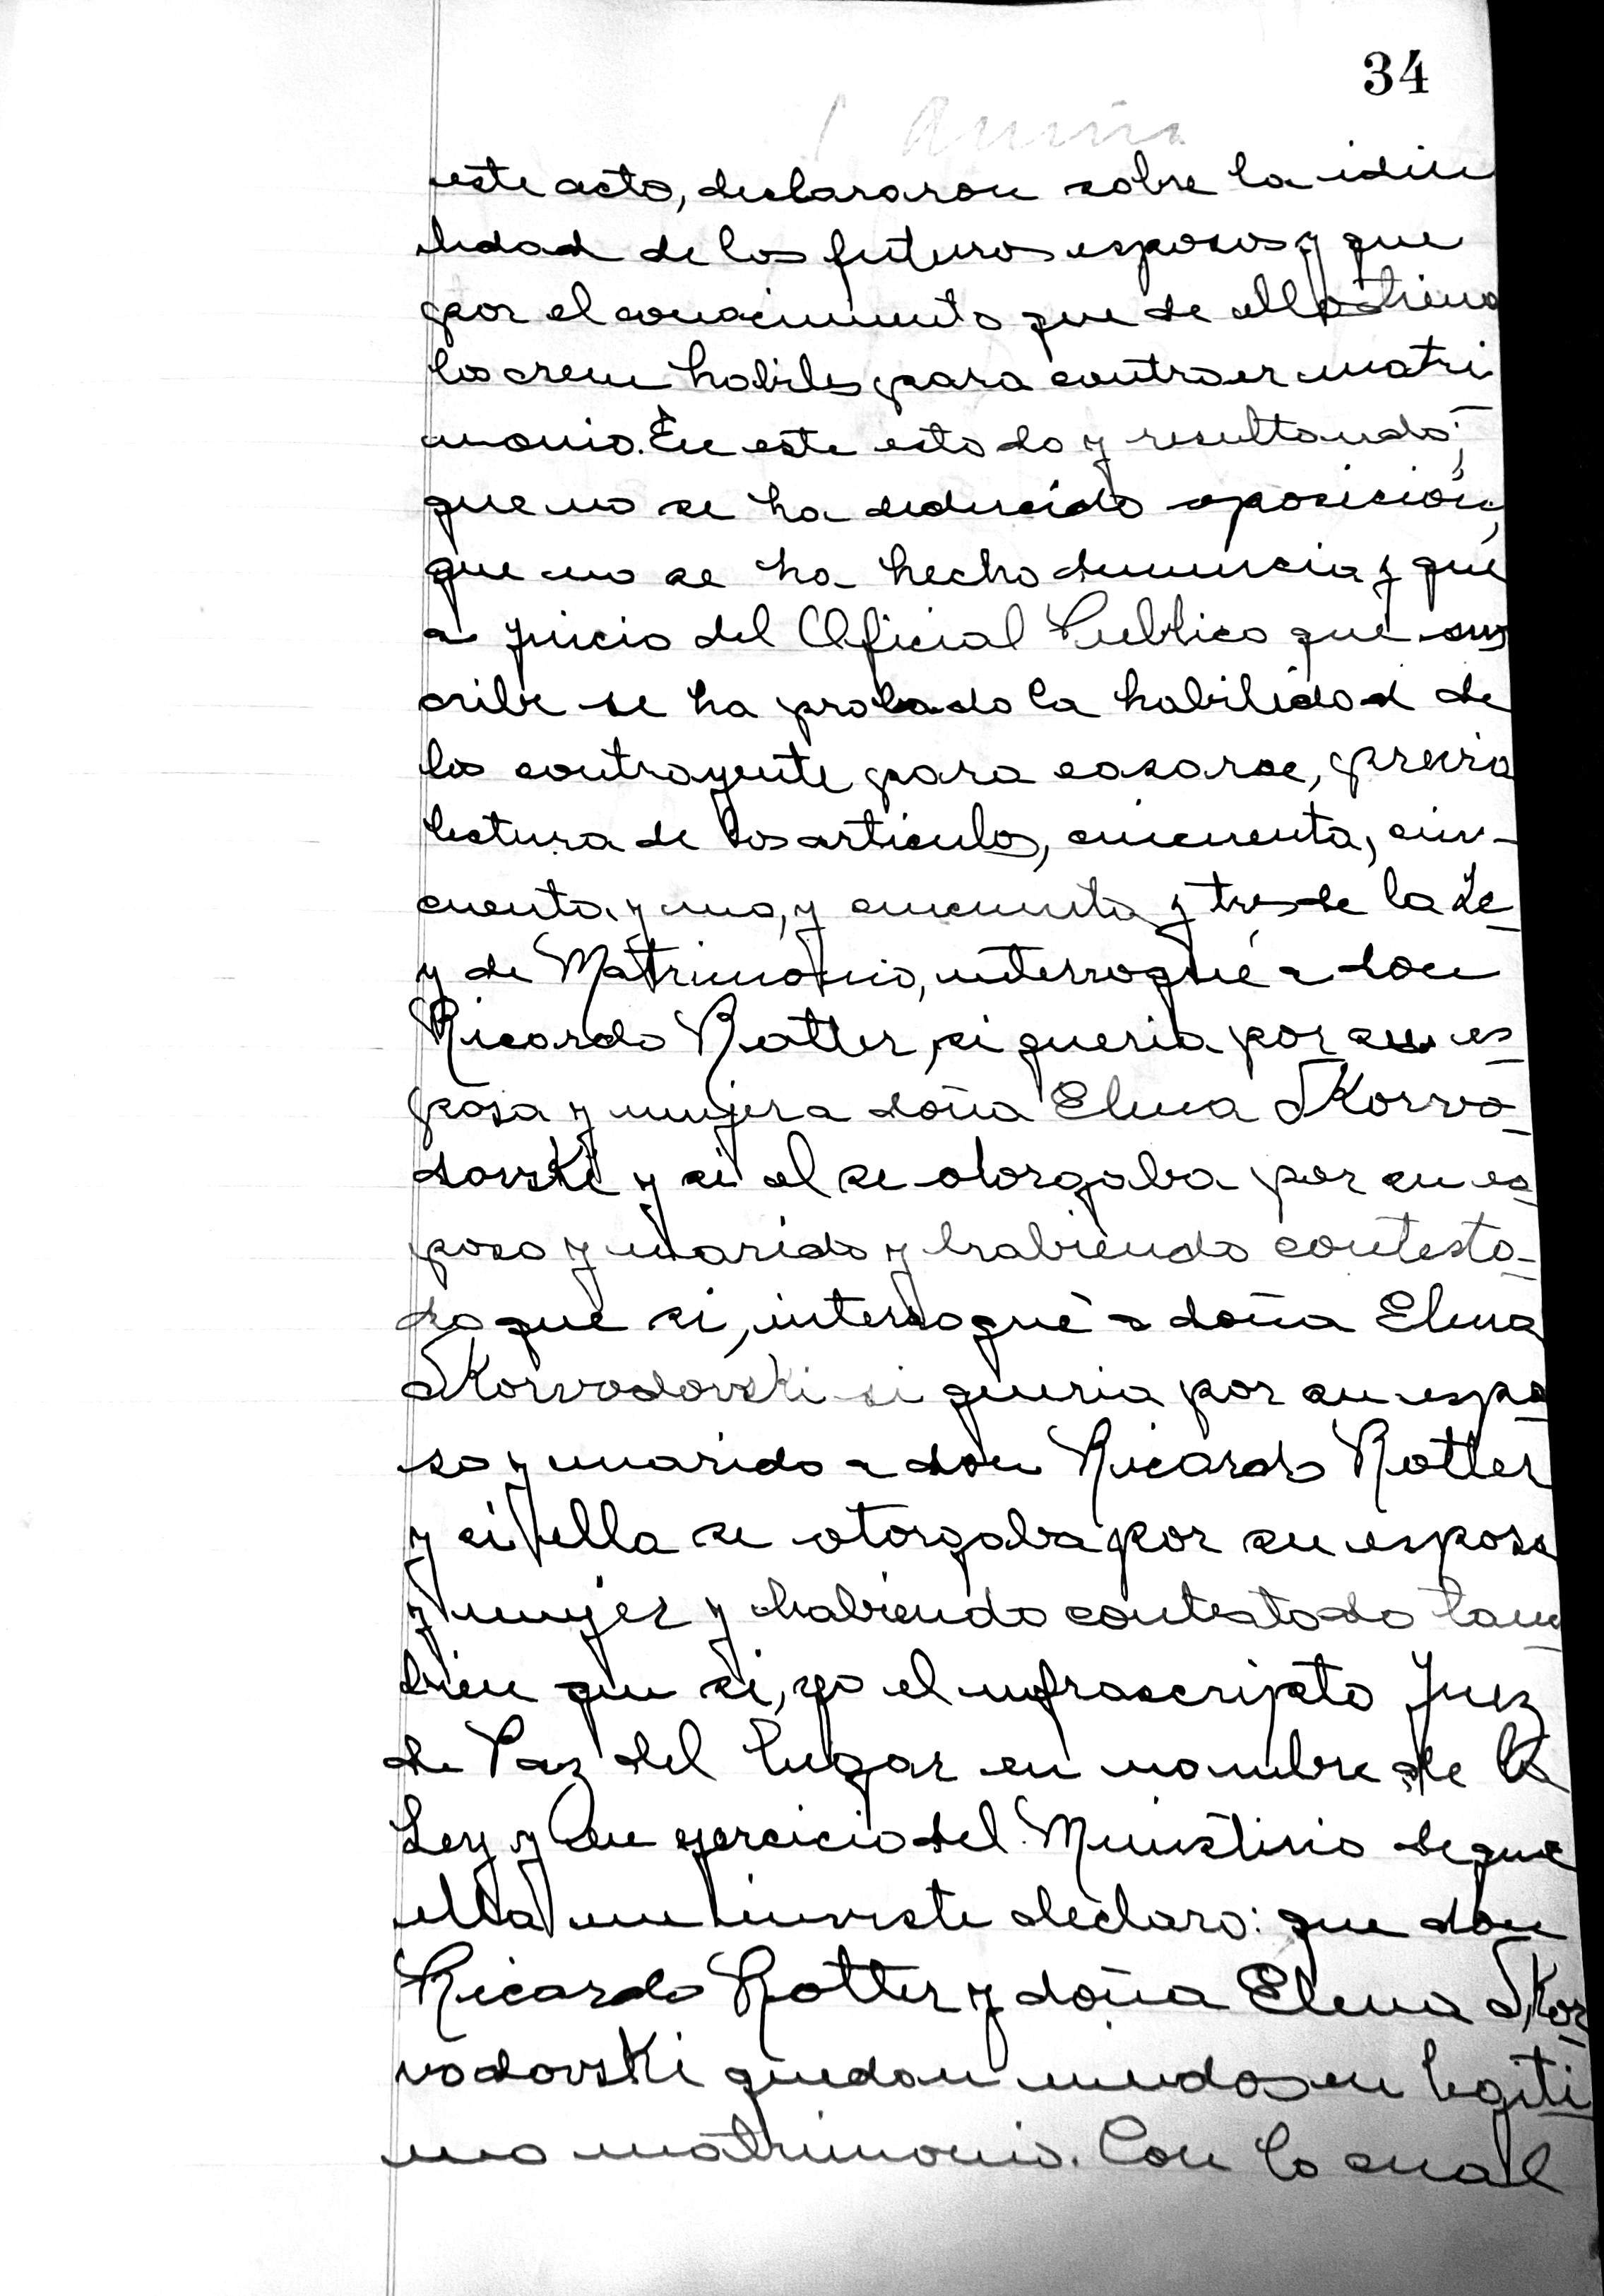 34
este acto, declararon sobre la iden
tidad de los futuros esposos y que
por el conocimiento que de ellos tiena
los creen habiles para contraer matri
monio. En este estado y resultando;
que no se ha deducido oposición,
que no se ha hecho denuncia y que
a juicio del Oficial Publico que sus
cribe se ha probado la habilidad de
los contrayente para casarse, previa
lectura de los articulos, cincuenta, cin-
cuenta y uno, y cincuenta y tres de la Le
y de Matrimonio, interrogué a don
Ricardo Rotter, si queria por su es
posa y mujer a doña Elena Skorvo
dovski y si el se otorgaba por su es
poso y marido y habiendo contesta-
do que si, interrogué a doña Elena
Skorvodovski si queria por su espo
so y marido a don Ricardo Rotter
y si ella se otorgaba por su esposa
y mujer y habiendo contestado tam
bien que si, yo el infrascripto Juez
de Paz del lugar en nombre de la
Ley y en ejercicio del Ministerio de que
ella me inviste declaro: que don
Ricardo Rotter y doña Elena Skor
vodovski quedan unidos en legiti
mo matrimonio. Con lo cual